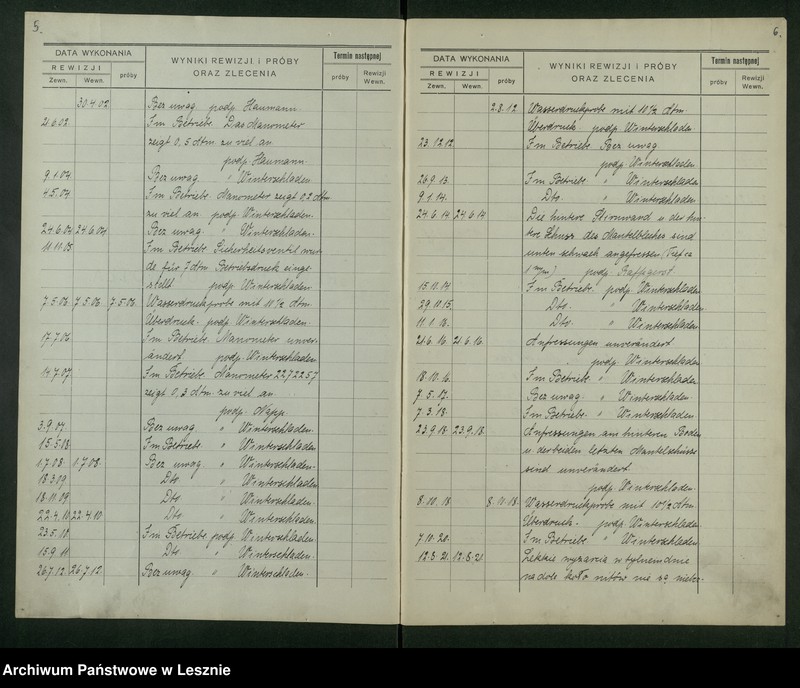 5.
DATA WYKONANIA
REWIZJI
Zewn. Wewn. próby
WYNIKI REWIZJI I PRÓBY
ORAZ ZLECENIA
Termin następnej
próby Rewizji Wewn.
30.4.02 Bez uwag podp. Haumann.
21.6.02. Im Betriebe. Das Manometer
zeigt 0,5 Atm. zu viel an
podp. Haumann.
9.1.04. Bez uwag " Winterschladen.
4.5.04. Im Betriebe. Manometer zeigt 0.2 Atm
zu viel an podp. Winterschladen.
24.6.04 24.6.04 Bez uwag " Winterschladen.
11.11.05 Im Betriebe. Sicherheitsventil wur-
de für 7 Atm. Betriebsdruck einge
stellt podp. Winterschladen
7.5.06. 7.5.06. 7.5.06. Wasserdruckprobe mit 10 1/2 Atm.
Überdruck. podp. Winterschladen.
17.7.06. Im Betriebe. Manometer unver-
ändert podp. Winterschladen
14.7.07. Im Betriebe. Manometer 2272257
zeigt 0,3 Atm. zu viel an.
podp.
3.9.07. Bez uwag " Winterschladen.
15.5.08. Im Betriebe " Winterschladen.
1.7.08. 1.7.08. Bez uwag " Winterschladen.
18.3.09 Dto " Winterschladen
18.11.09. Dto " Winterschladen.
22.4.10 22.4.10. Dto " Winterschladen.
23.5.10 Im Betriebe podp. Winterschladen.
15.9.11 Dto " Winterschladen.
26.7.12. 26.7.12. Bez uwag " Winterschladen.
6.
DATA WYKONANIA
REWIZJI
Zewn. Wewn. próby
WYNIKI REWIZJI I PRÓBY
ORAZ ZLECENIA
Termin następnej
próby Rewizji Wewn.
2.8.12. Wasserdruckprobe mit 10 1/2 Atm.
Überdruck podp. Winterschladen
23.12.12. Im Betriebe Bez uwag
podp. Winterschladen
26.9.13. Im Betriebe " Winterschladen
9.1.14. Dto. " Winterschladen
24.6.14 24.6.14 Die hintere Stirnwand u. der hin
tere Schuss des Mantelbleches sind
unten schwach angefressen
podp.
15.11.14. Im Betriebe. podp. Winterschladen
29.11.15. Dto. " Winterschladen
11.1.16. Dto. " Winterschladen
21.6.16. 21.6.16. Anfressungen unverändert
podp. Winterschladen
18.10.16. Im Betriebe " Winterschladen
7.5.17. Bez uwag " Winterschladen.
7.3.18. Im Betriebe. " Winterschladen
23.9.18. 23.9.18. Anfressungen am hinteren Boden
u. der beiden letzten Mantelschüsse
sind unverändert
podp. Winterschladen.
8.10.18. 8.10.18. Wasserdruckprobe mit 10 1/2 Atm
Überdruck. podp. Winterschladen.
7.10.20. Im Betriebe " Winterschladen
12.8.21. 12.8.21. Lekkie wyżarcia w tylnem dnie
na dole koło nitów nie są niebez-
Archiwum Państwowe w Lesznie